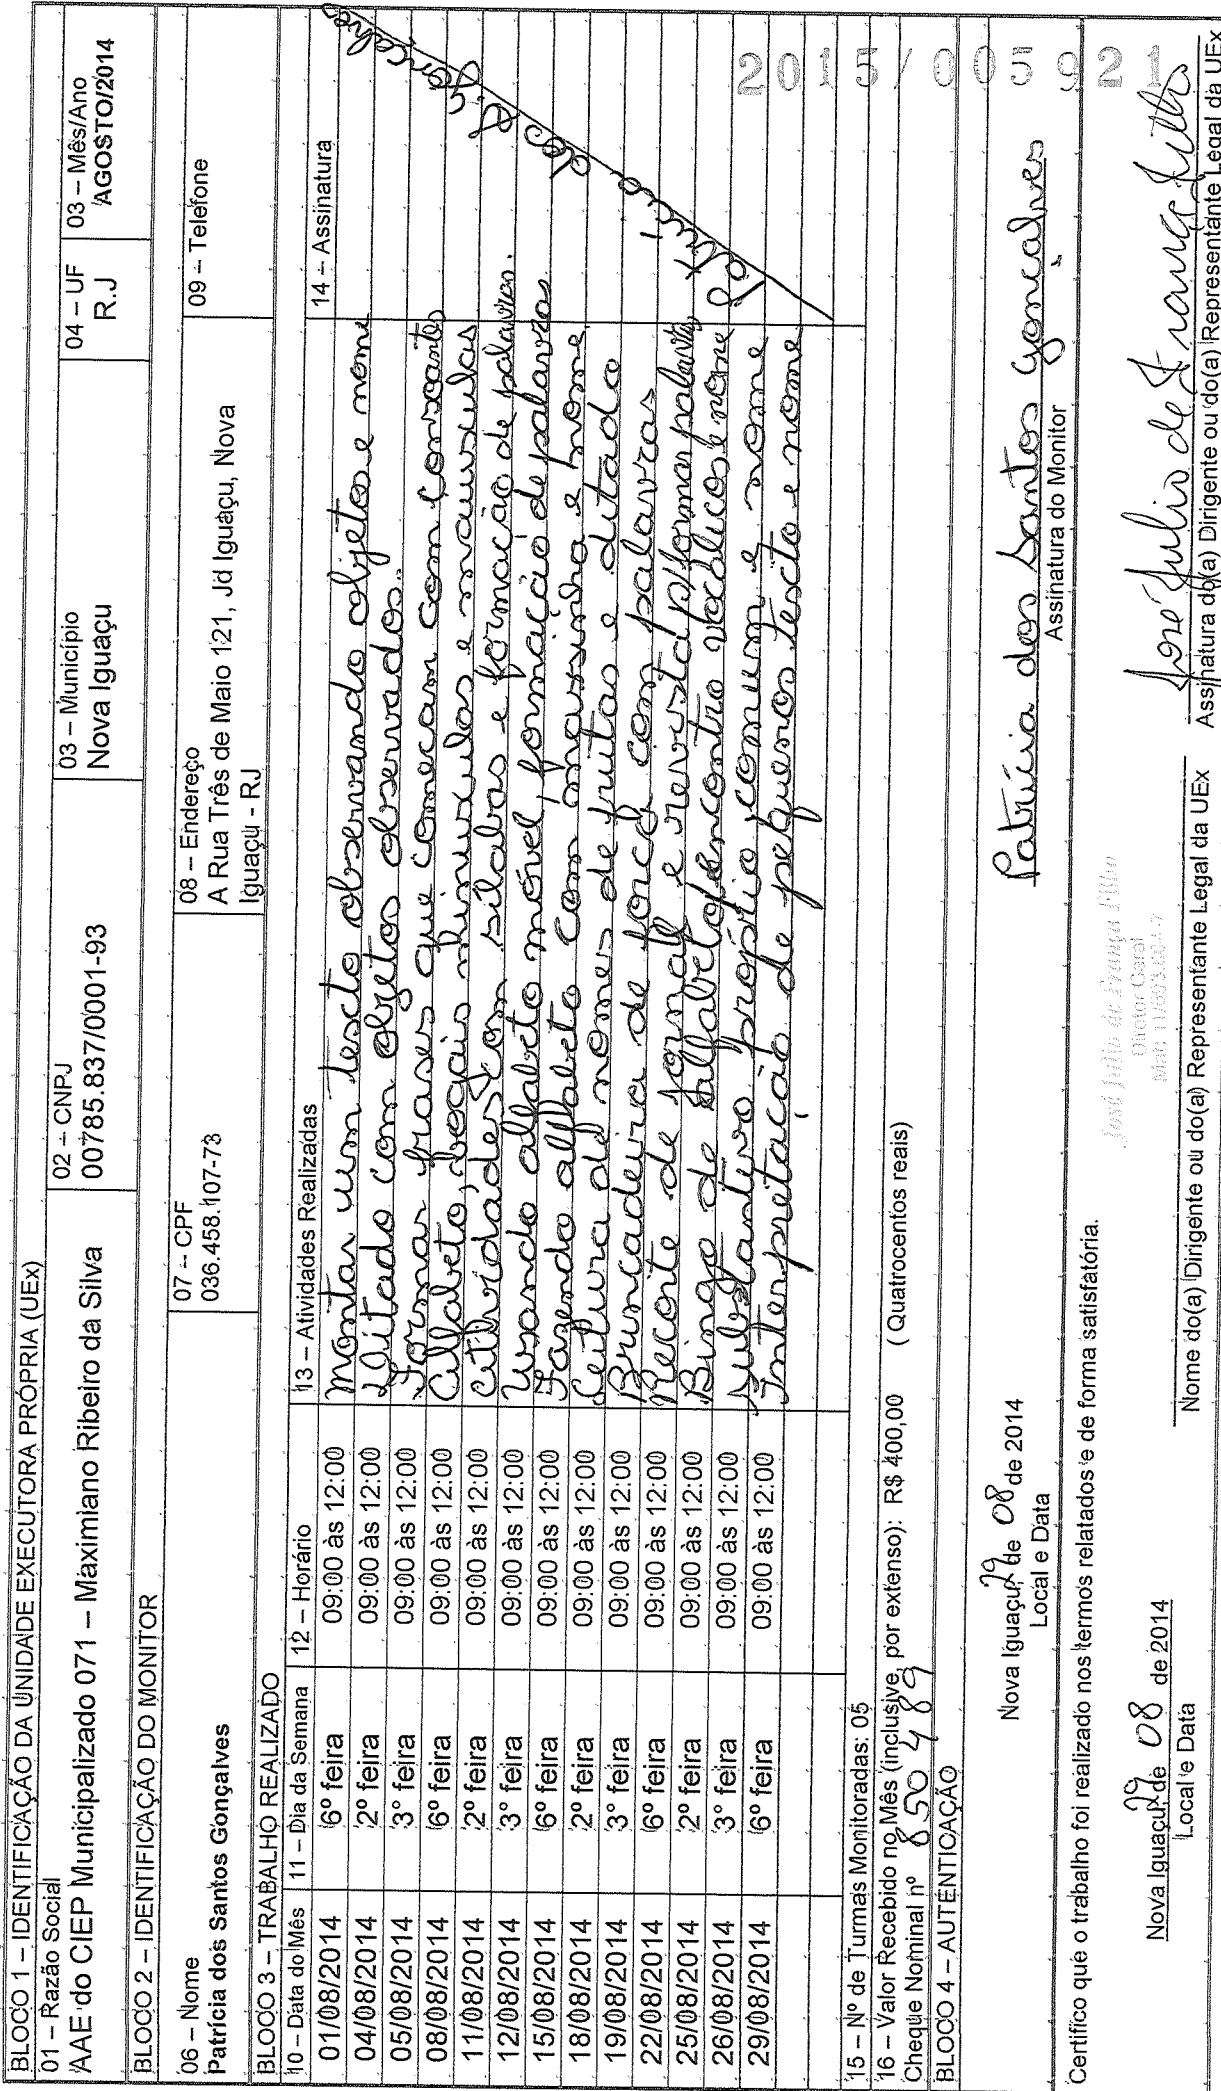 BLOCO 1 – IDENTIFICAÇÃO DA UNIDADE EXECUTORA PRÓPRIA (UEx)
01 – Razão Social
AAE do CIEP Municipalizado 071 – Maximiano Ribeiro da Silva
02 – CNPJ
00785.837/0001-93
03 – Município
Nova Iguaçu
04 – UF
R.J
03 – Mês/Ano
AGOSTO/2014
BLOCO 2 – IDENTIFICAÇÃO DO MONITOR
06 – Nome
Patrícia dos Santos Gonçalves
07 – CPF
036.458.107-73
08 – Endereço
A Rua Três de Maio 121, Jd Iguaçu, Nova
Iguaçu - RJ
09 – Telefone
BLOCO 3 – TRABALHO REALIZADO
10 – Data do Mês 11 – Dia da Semana 12 – Horário 13 – Atividades Realizadas 14 – Assinatura
01/08/2014 6º feira 09:00 às 12:00 Montar um texto observando objetos e nome
04/08/2014 2º feira 09:00 às 12:00 Ditado com objetos observados.
05/08/2014 3º feira 09:00 às 12:00 Formar frases que começam com consoantes
08/08/2014 6º feira 09:00 às 12:00 Alfabeto, vogais minúsculas e maiúsculas
11/08/2014 2º feira 09:00 às 12:00 Atividades com sílabas e formação de palavras.
12/08/2014 3º feira 09:00 às 12:00 Usando alfabeto móvel, formação de palavras
15/08/2014 6º feira 09:00 às 12:00 Fazendo alfabeto com massinha e nome
18/08/2014 2º feira 09:00 às 12:00 Leitura de nomes de frutas e ditado
19/08/2014 3º feira 09:00 às 12:00 Brincadeira de forca com palavras
22/08/2014 6º feira 09:00 às 12:00 Recorte de jornal e revista p/formar palavras
25/08/2014 2º feira 09:00 às 12:00 Bingo de alfabeto, encontro vocálicos e nome
26/08/2014 3º feira 09:00 às 12:00 Substantivo próprio, comum e nome
29/08/2014 6º feira 09:00 às 12:00 Interpretação de pequenos texto e nome
Patrícia dos S. Gonçalves
15 – Nº de Turmas Monitoradas: 05
16 – Valor Recebido no Mês (inclusive, por extenso): R$ 400,00 (Quatrocentos reais)
Cheque Nominal nº 850489
BLOCO 4 – AUTENTICAÇÃO
2015/005921
Nova Iguaçu, 29 de 08 de 2014
Local e Data
Patrícia dos Santos Gonçalves
Assinatura do Monitor
Certifico que o trabalho foi realizado nos termos relatados e de forma satisfatória.
Nova Iguaçu, 29 de 08 de 2014
Local e Data
José Julio de França Filho
Diretor Geral
Nome do(a) Dirigente ou do(a) Representante Legal da UEx
José Julio de França Filho
Assinatura do(a) Dirigente ou do(a) Representante Legal da UEx